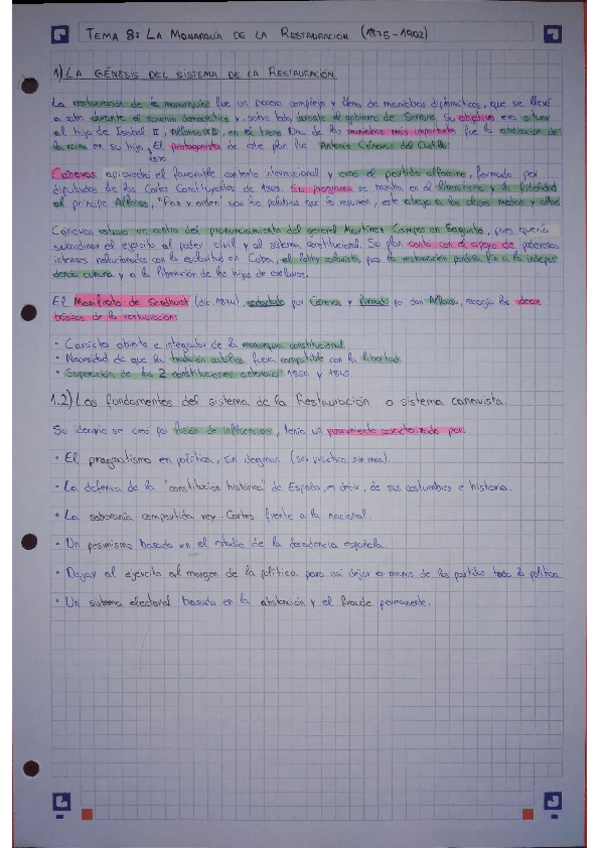 TEMA 8: LA MONARQUÍA DE LA RESTAURACIÓN. (1875-1902)
1) LA GÉNESIS DEL SISTEMA DE LA RESTAURACIÓN
La restauración de la monarquía fue un proceso complejo y lleno de maniobras diplomáticas, que se llevó
a cabo durante el sexenio democrático y, sobre todo, durante el gobierno de Serrano. Su objetivo era situar
al hijo de Isabel II, Alfonso XII, en el trono. Una de las maniobras más importantes fue la abdicación de
la reina en su hijo. El protagonista de este plan fue Antonio Cánovas del Castillo.
1870
Cánovas aprovechó el favorable contexto internacional y creó el partido alfonsino, formado por
diputados de las Cortes Constituyentes de 1869. Su programa se basaba en el liberalismo y la fidelidad
al príncipe Alfonso, "Paz y orden" son las palabras que lo resumen, este atrajo a las clases medias y altas
Cánovas estuvo en contra del pronunciamiento del general Martínez Campos en Sagunto, pues quería
subordinar el ejército al poder civil y al sistema constitucional. Su plan contó con el apoyo de poderosos
intereses relacionados con la esclavitud en Cuba, el lobby esclavista, pues la restauración pondría fin a la indepen
dencia cubana y a la liberación de los hijos de esclavos.
El Manifiesto de Sandhurst (dic. 1874), redactado por Cánovas y firmado por don Alfonso, recogía las ideas
básicas de la restauración:
· Carácter abierto e integrador de la monarquía constitucional.
· Necesidad de que la tradición católica fuera compatible con la libertad.
· Superación de las 2 constituciones anteriores 1869 y 1845
1.2) Los fundamentos del sistema de la Restauración o sistema canovista.
Su ideario se creó por fusión de influencias, tenía un pensamiento caracterizado por:
· El pragmatismo en política, sin dogmas (ser práctico, sin ideal).
· La defensa de la "constitución histórica" de España, es decir, de sus costumbres e historia.
· La soberanía compartida rey-Cortes frente a la nacional.
· Un pesimismo basado en el estudio de la decadencia española.
· Dejar al ejército al margen de la política para así dejar en manos de los partidos toda la política
· Un sistema electoral basado en la abstención y el fraude permanente.